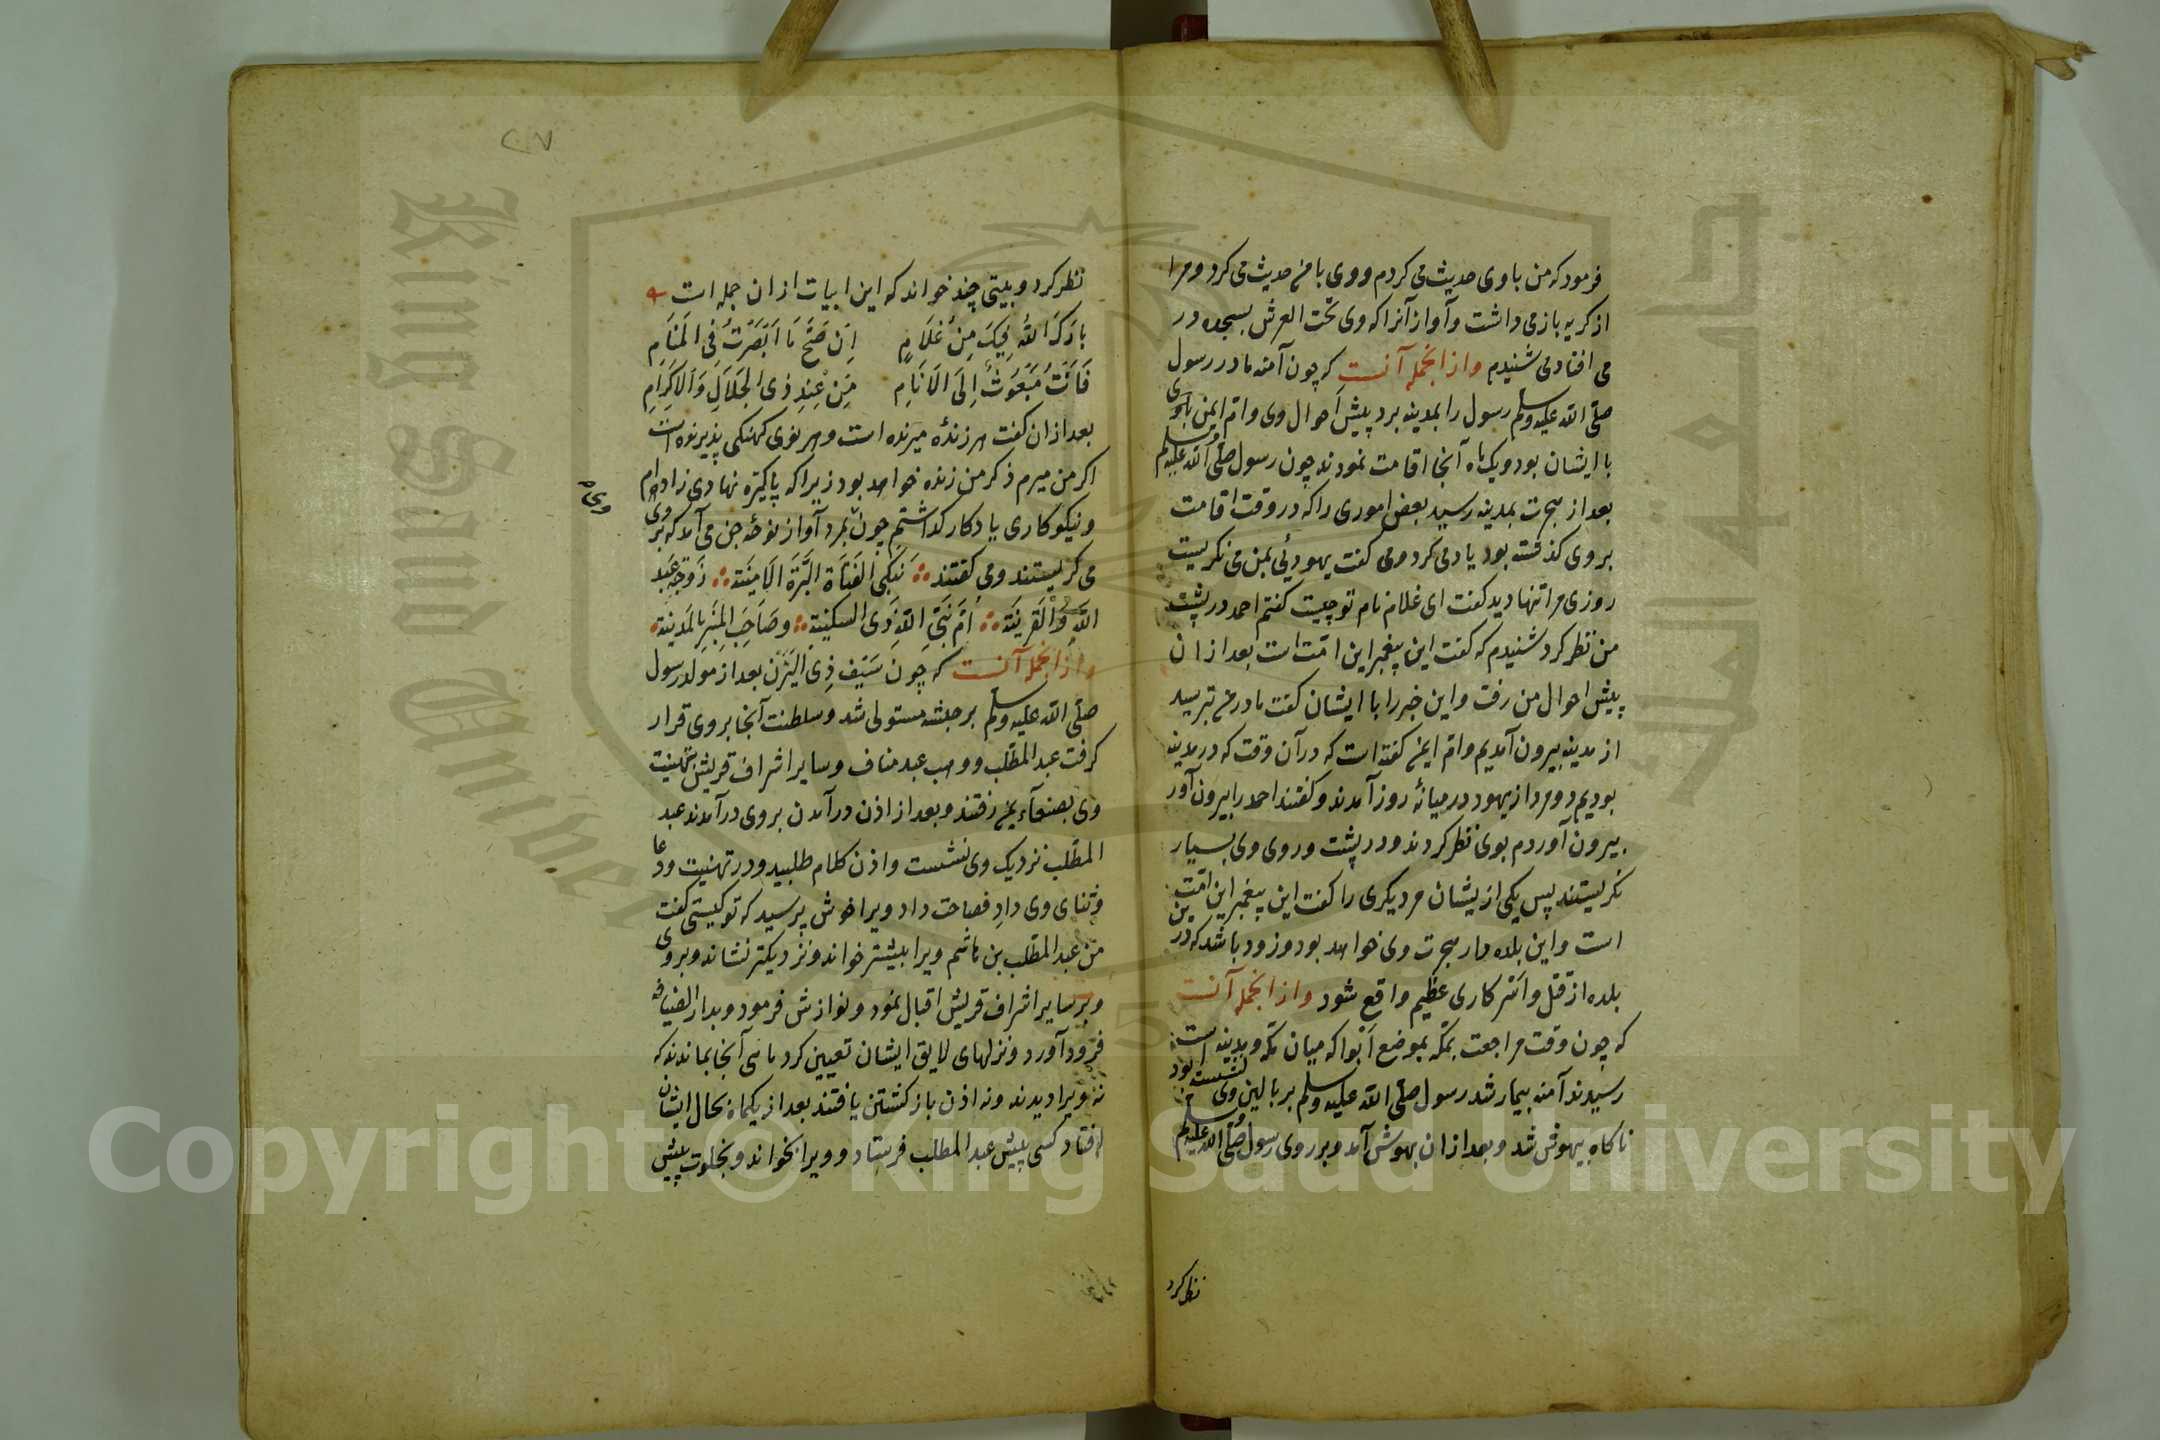 فرمود که من با وی حدیث می کردم و وی با من حدیث می کرد و مرا
از کریه باز می داشت و آواز آنرا که وی تحت العرش بسجده در
می افتاد می شنیدم و از انجمله آنست که چون آمنه مادر رسول
صلی الله علیه وسلم رسول را بمدینه برد پیش احوال وی وام ایمن با وی
با ایشان بود و یک ماه آنجا اقامت نمودند چون رسول صلی الله علیه وسلم
بعد از هجرت بمدینه رسید بعض اموری را که در وقت اقامت
بر وی کذشته بود یاد می کرد و می کفت یهودئی بمن می نکریست
روزی مرا تنها دید کفت ای غلام نام تو چیست کفتم احمد در پشت
من نظر کرد شنیدم که کفت این پیغمبر این امت است بعد از ان
پیش احوال من رفت و این خبر را با ایشان کفت مادر من بترسید
از مدینه بیرون آمدیم وام ایمن کفته است که در آن وقت که در مدینه
بودیم دو مرد از یهود در میانه روز آمدند و کفتند احمد را بیرون آور
بیرون آوردم بوی نظر کردند و در پشت و روی وی بسیار
نکریستند پس یکی از یشان مر دیکری را کفت این پیغمبر این امت
است و این بلده دار هجرت وی خواهد بود و زود باشد که در ین
بلده از قتل و اسر کاری عظیم واقع شود و از انجمله آنست
که چون وقت مراجعت بمکه بموضع ابوا که میان مکه و مدینه است
رسیدند آمنه بیمار شد رسول صلی الله علیه وسلم بر بالین وی نشسته بود
ناکاه بیهوش شد و بعد از ان بهوش آمد و بر روی رسول صلی الله علیه وسلم
نظر کرد
۲۱۷
نظر کرد و بیتی چند خواند که این ابیات از ان جمله است
بارک الله فیک من غلام ان صح ما ابصرت فی المنام
فانت مبعوث الی الانام من عند ذی الجلال والاکرام
بعد از ان کفت هر زنده میرنده است و هر نوی کهنکی پذیرنده است
اکر من میرم ذکر من زنده خواهد بود زیرا که پاکیزه نهادی زاده ام
و نیکوکاری یادکار کذاشتم چون بمرد آواز نوحه جن می آمد که بر وی
می کریستند و می کفتند نبکی الفتاة البرة الامینة زوجة عبد
الله والقرینة ام نبی الله ذی السکینة وصاحب المنبر بالمدینة
و از انجمله آنست که چون سیف ذی الیزن بعد از مولد رسول
صلی الله علیه وسلم بر حبشه مستولی شد و سلطنت آنجا بر وی قرار
کرفت عبد المطلب و وهب عبد مناف و سایر اشراف قریش بتهنیت
وی بصنعآء یمن رفتند و بعد از اذن در آمدن بر وی در آمدند عبد
المطلب نزدیک وی نشست و اذن کلام طلبید و در تهنیت و دعا
و ثنای وی داد فصاحت داد ویرا خوش پرسید که تو کیستی کفت
من عبد المطلب بن هاشم ویرا بیشتر خواند و نزدیکتر نشاند و بر وی
و بر سایر اشراف قریش اقبال نمود و نوازش فرمود و بدار الضیافه
فرود آورد و نزلهای لایق ایشان تعیین کرد ماهی آنجا بماندند که
نه ویرا دیدند و نه اذن باز کشتن یافتند بعد از یکماه بحال ایشان
افتاد کسی پیش عبد المطلب فرستاد و ویرا بخواند و بخلوت پیش
Copyright © King Saud University
King Saud University